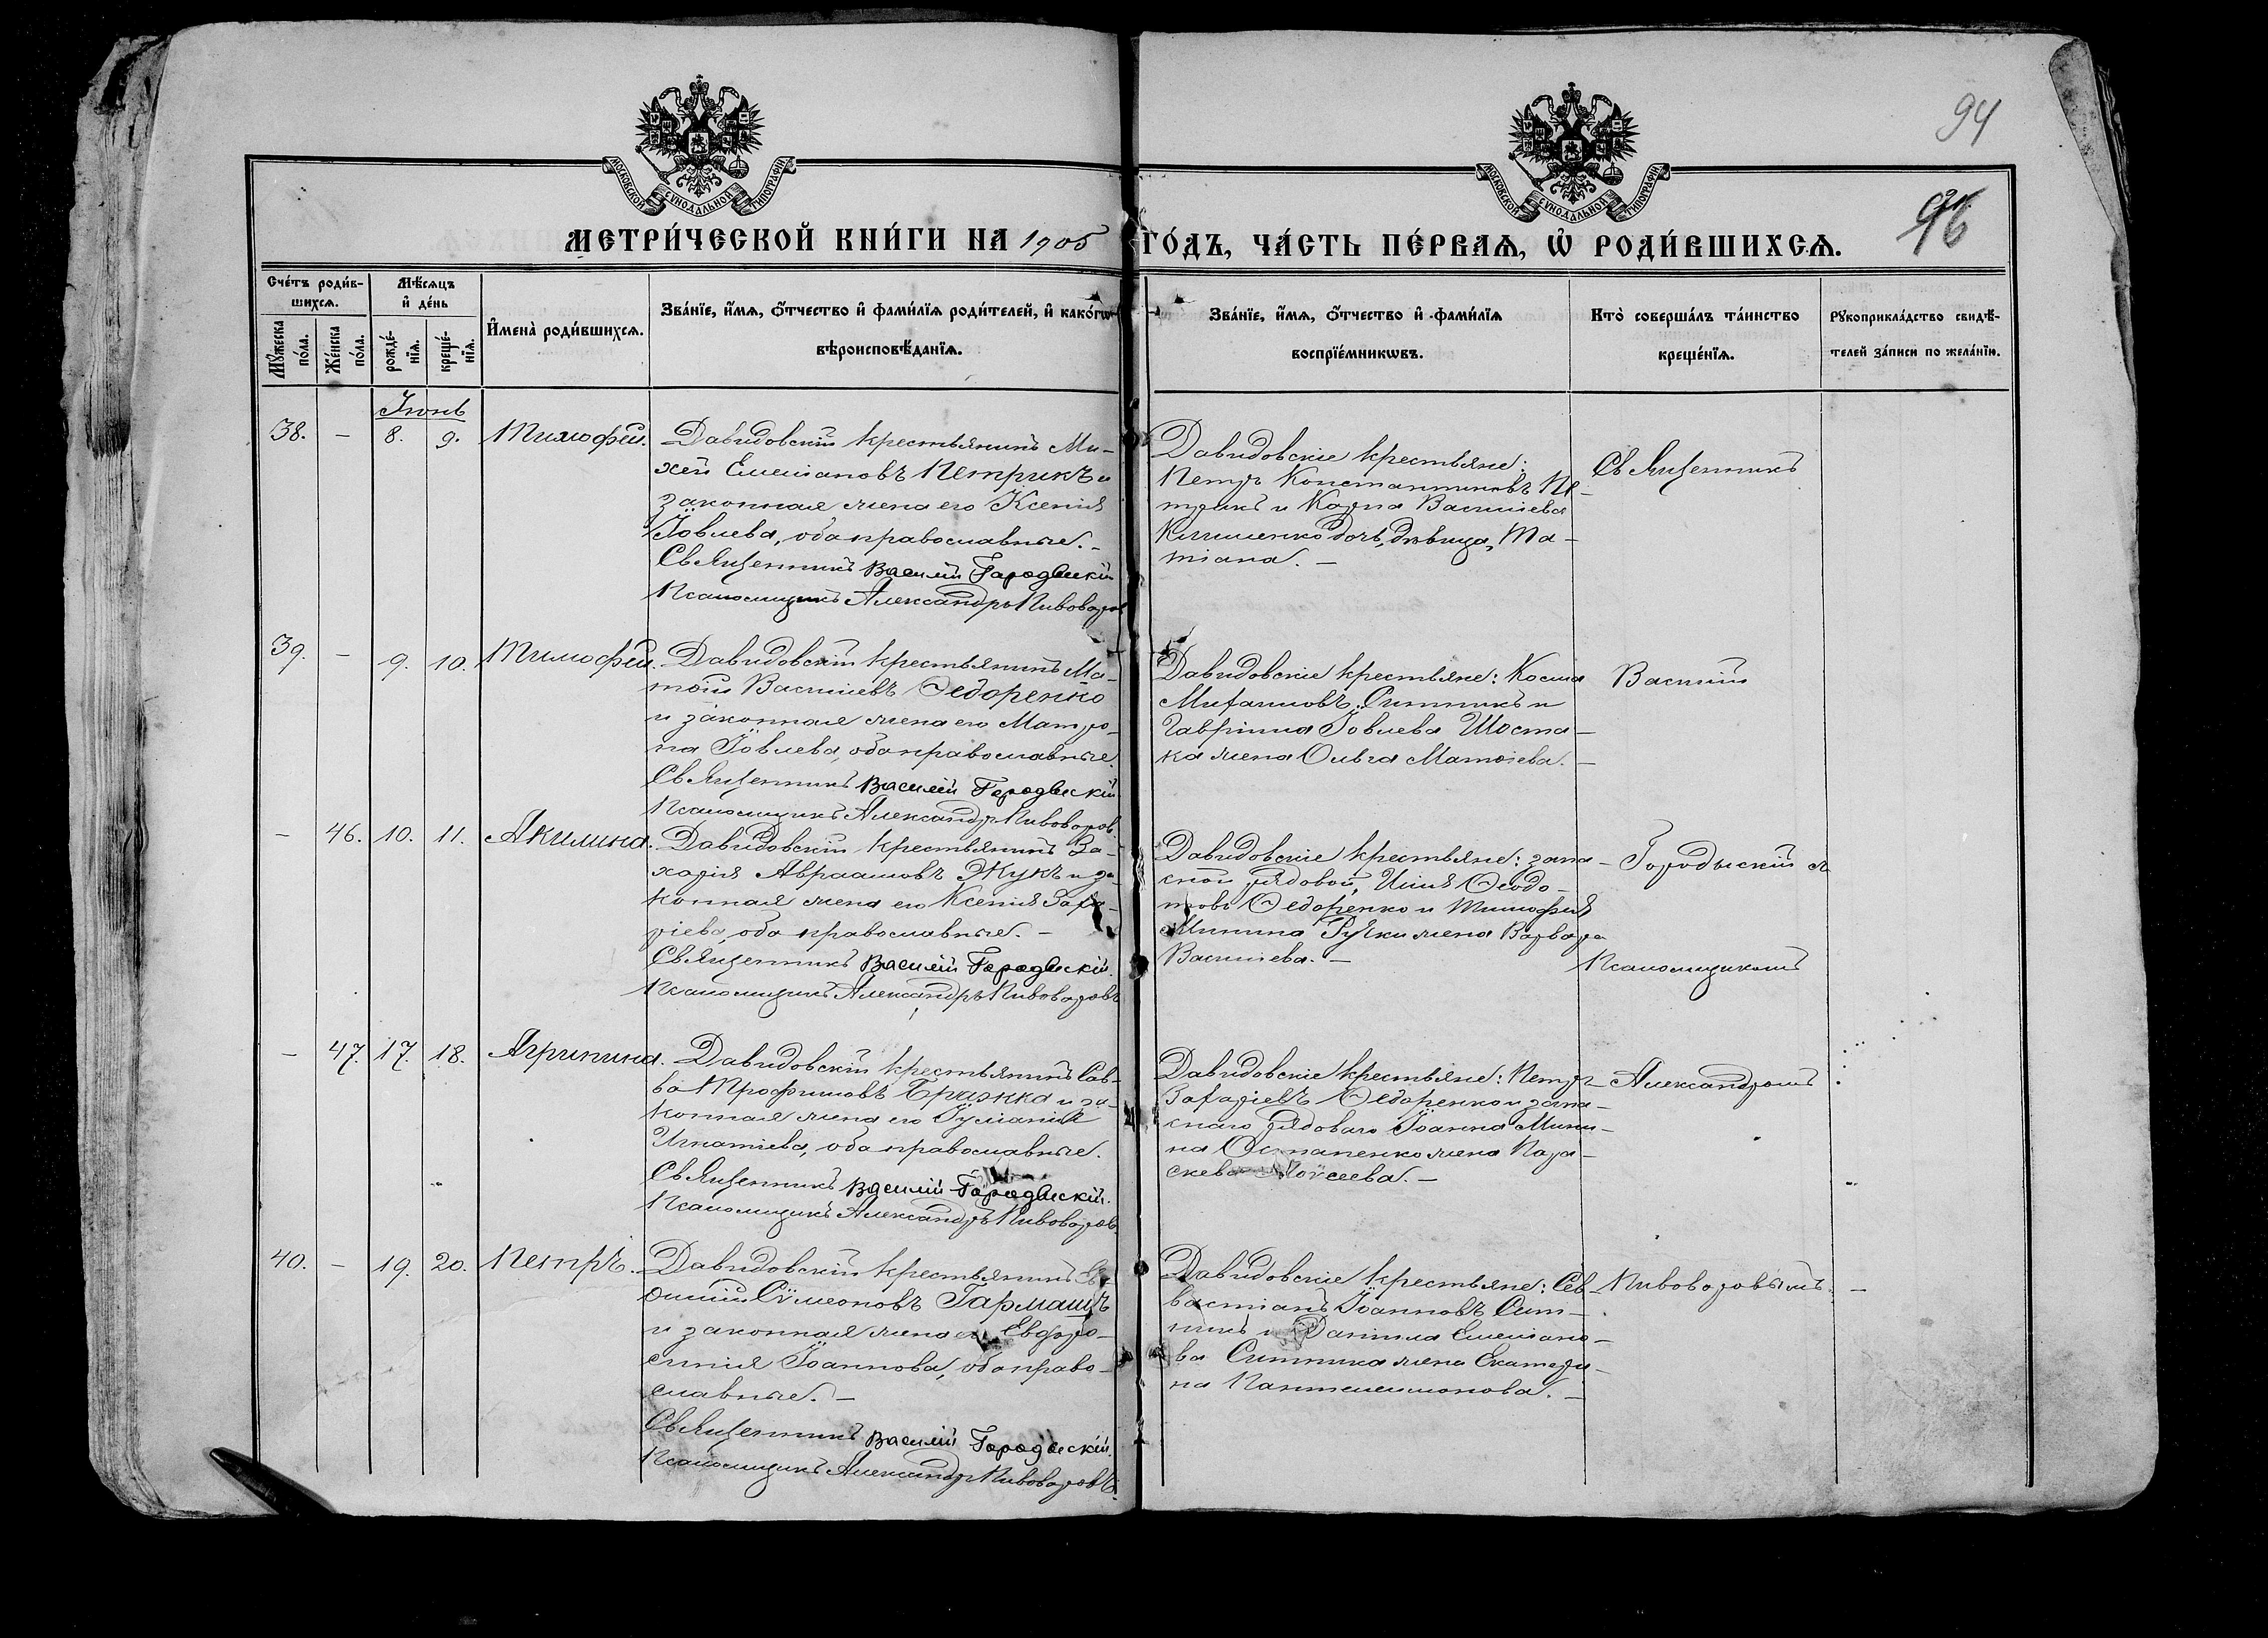 94
96
МЕТРИ́ЧЕСКОЙ КНИ́ГИ НА 1905 ГО́ДЪ, ЧА́СТЬ ПЕ́РВАѦ, Ѡ҆ РОДИ́ВШИХСѦ.
МОСКОВСКОЙ СѴНОДАЛЬНОЙ ТИПОГРАФІИ
МОСКОВСКОЙ СѴНОДАЛЬНОЙ ТИПОГРАФІИ
Сче́тъ роди́в-
шихсѧ.
Мꙋ́жеска по́ла.
Же́нска по́ла.
Мѣ́сѧцъ
и҆ де́нь
рожде́-нїѧ.
креще́-нїѧ.
И҆мена̀ роди́вшихсѧ.
Зва́нїе, и҆́мѧ, ѻ҆́тчество и҆ фами́лїѧ роди́телей, и҆ како́гѡ
вѣроисповѣ́данїѧ.
Зва́нїе, и҆́мѧ, ѻ҆́тчество и҆ фами́лїѧ
воспрїе́мникѡвъ.
Кто̀ соверша́лъ та́инство
креще́нїѧ.
Рꙋкоприкла́дство свидѣ́-
телей за́писи по жела́нїю.
Іюнь
38. – 8. 9. Тимофей.
Давидовскій крестьянинъ Ми-
хей Емеліановъ Петрикъ и
законная жена его Ксенія
Іовлева, оба православные. –
Священникъ Василій Городыскій
Псаломщикъ Александръ Пивоваровъ
Давидовскіе крестьяне:
Петръ Константиновъ Пе-
трикъ и Карпа Васильева
Клименко дочь, дѣвица, Та-
тіана. –
Священникъ
39. – 9. 10. Тимофей.
Давидовскій крестьянинъ Ма-
тѳій Васильевъ Ѳедоренко
и законная жена его Матро-
на Іовлева, оба православные.
Священникъ Василій Городыскій
Псаломщикъ Александръ Пивоваровъ.
Давидовскіе крестьяне: Косма
Михаиловъ Ситникъ и
Гавріила Іовлева Шоста-
ка жена Ольга Матѳіева. –
Василій
– 46. 10. 11. Акилина.
Давидовскій крестьянинъ За-
харія Авраамовъ Жукъ и за-
конная жена его Ксенія Заха-
ріева, оба православные. –
Священникъ Василій Городыскій.
Псаломщикъ Александръ Пивоваровъ
Давидовскіе крестьяне: запа-
сной рядовой, Илія Ѳеодо-
товъ Ѳедоренко и Тимофея
Минина Руски жена Варвара
Васильева. –
Городыскій съ
Псаломщикомъ
– 47. 17. 18. Агрипина.
Давидовскій крестьянинъ Сав-
ва Трофимовъ Бражка и за-
конная жена его Іуліанія
Игнатіева, оба православные.
Священникъ Василій Городыскій.
Псаломщикъ Александръ Пивоваровъ
Давидовскіе крестьяне: Петръ
Захаріевъ Ѳедоренко и запа-
снаго рядоваго Іоанна Мини-
на Остапенко жена Пара-
скева Моѵсеева. –
Александромъ
40. – 19. 20. Петръ.
Давидовскій крестьянинъ Ев-
ѳимій Сѵмеоновъ Гармашъ
и законная жена его Евфро-
синія Іоаннова, оба право-
славные. –
Священникъ Василій Городыскій.
Псаломщикъ Александръ Пивоваровъ.
Давидовскіе крестьяне: Сев-
вастіанъ Іоанновъ Сит-
никъ и Даніила Емеліано-
ва Ситника жена Екатери-
на Пантелеимонова. –
Пивоваровымъ. –